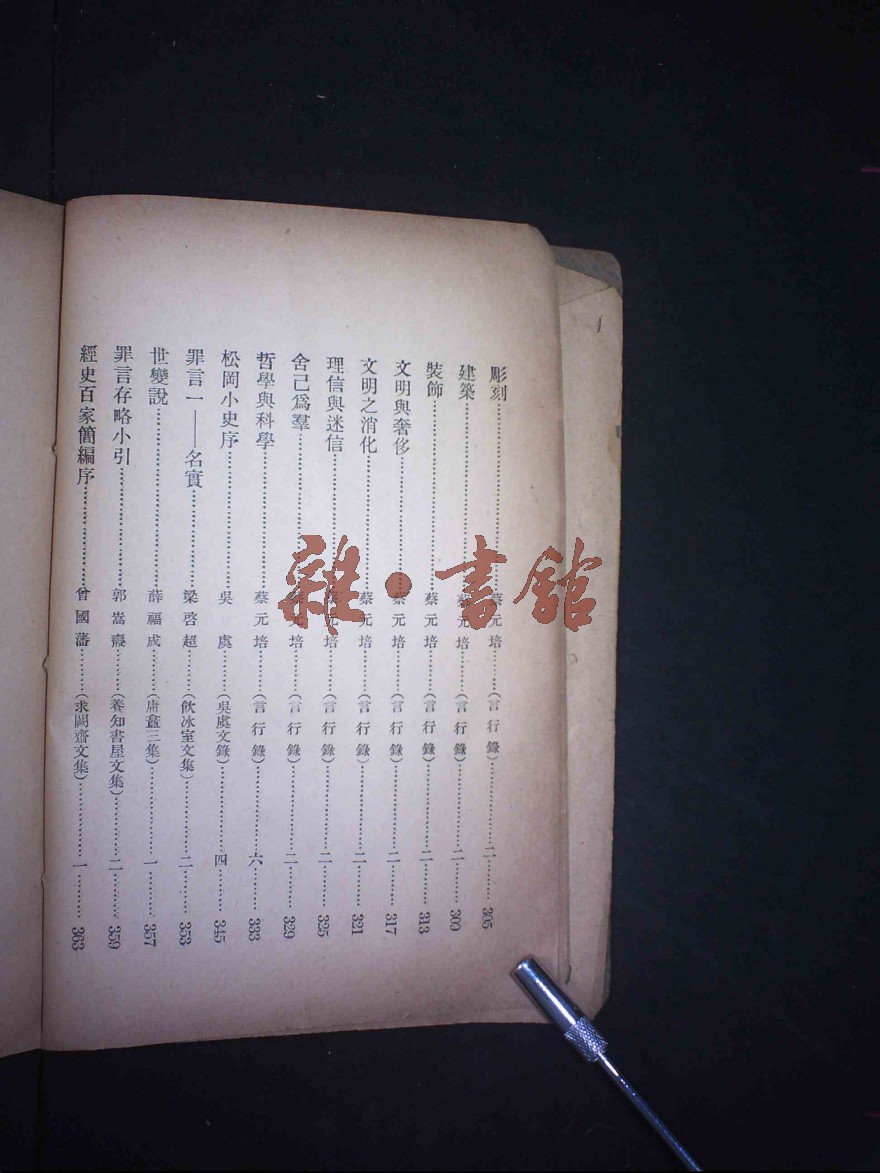 彫刻……蔡元培……(言行錄)……二……305
建築……蔡元培……(言行錄)……二……309
裝飾……蔡元培……(言行錄)……二……313
文明與奢侈……蔡元培……(言行錄)……二……317
文明之消化……蔡元培……(言行錄)……二……321
理信與迷信……蔡元培……(言行錄)……二……325
舍己爲羣……蔡元培……(言行錄)……二……329
哲學與科學……蔡元培……(言行錄)……六……333
松岡小史序……吳虞……(吳虞文錄)……四……345
罪言一——名實……梁啓超……(飲冰室文集)……二……353
世變說……薛福成……(庸盦三集)……一……357
罪言存略小引……郭嵩燾……(養知書屋文集)……二……359
經史百家簡編序……曾國藩……(求闕齋文集)……一……363
雜·書館